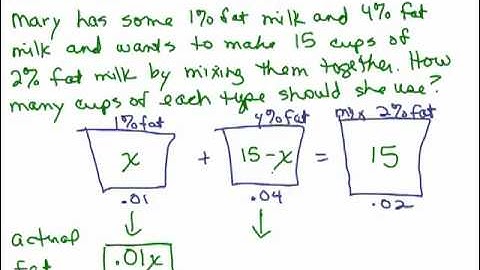 Mary has some 1% fat milk and 4% fat
milk and wants to make 15 cups of
2% fat milk by mixing them together. How
many cups of each type should she use?
1% fat 4% fat mix 2% fat
x + 15-x = 15
.01 .04 .02
actual
fat .01x